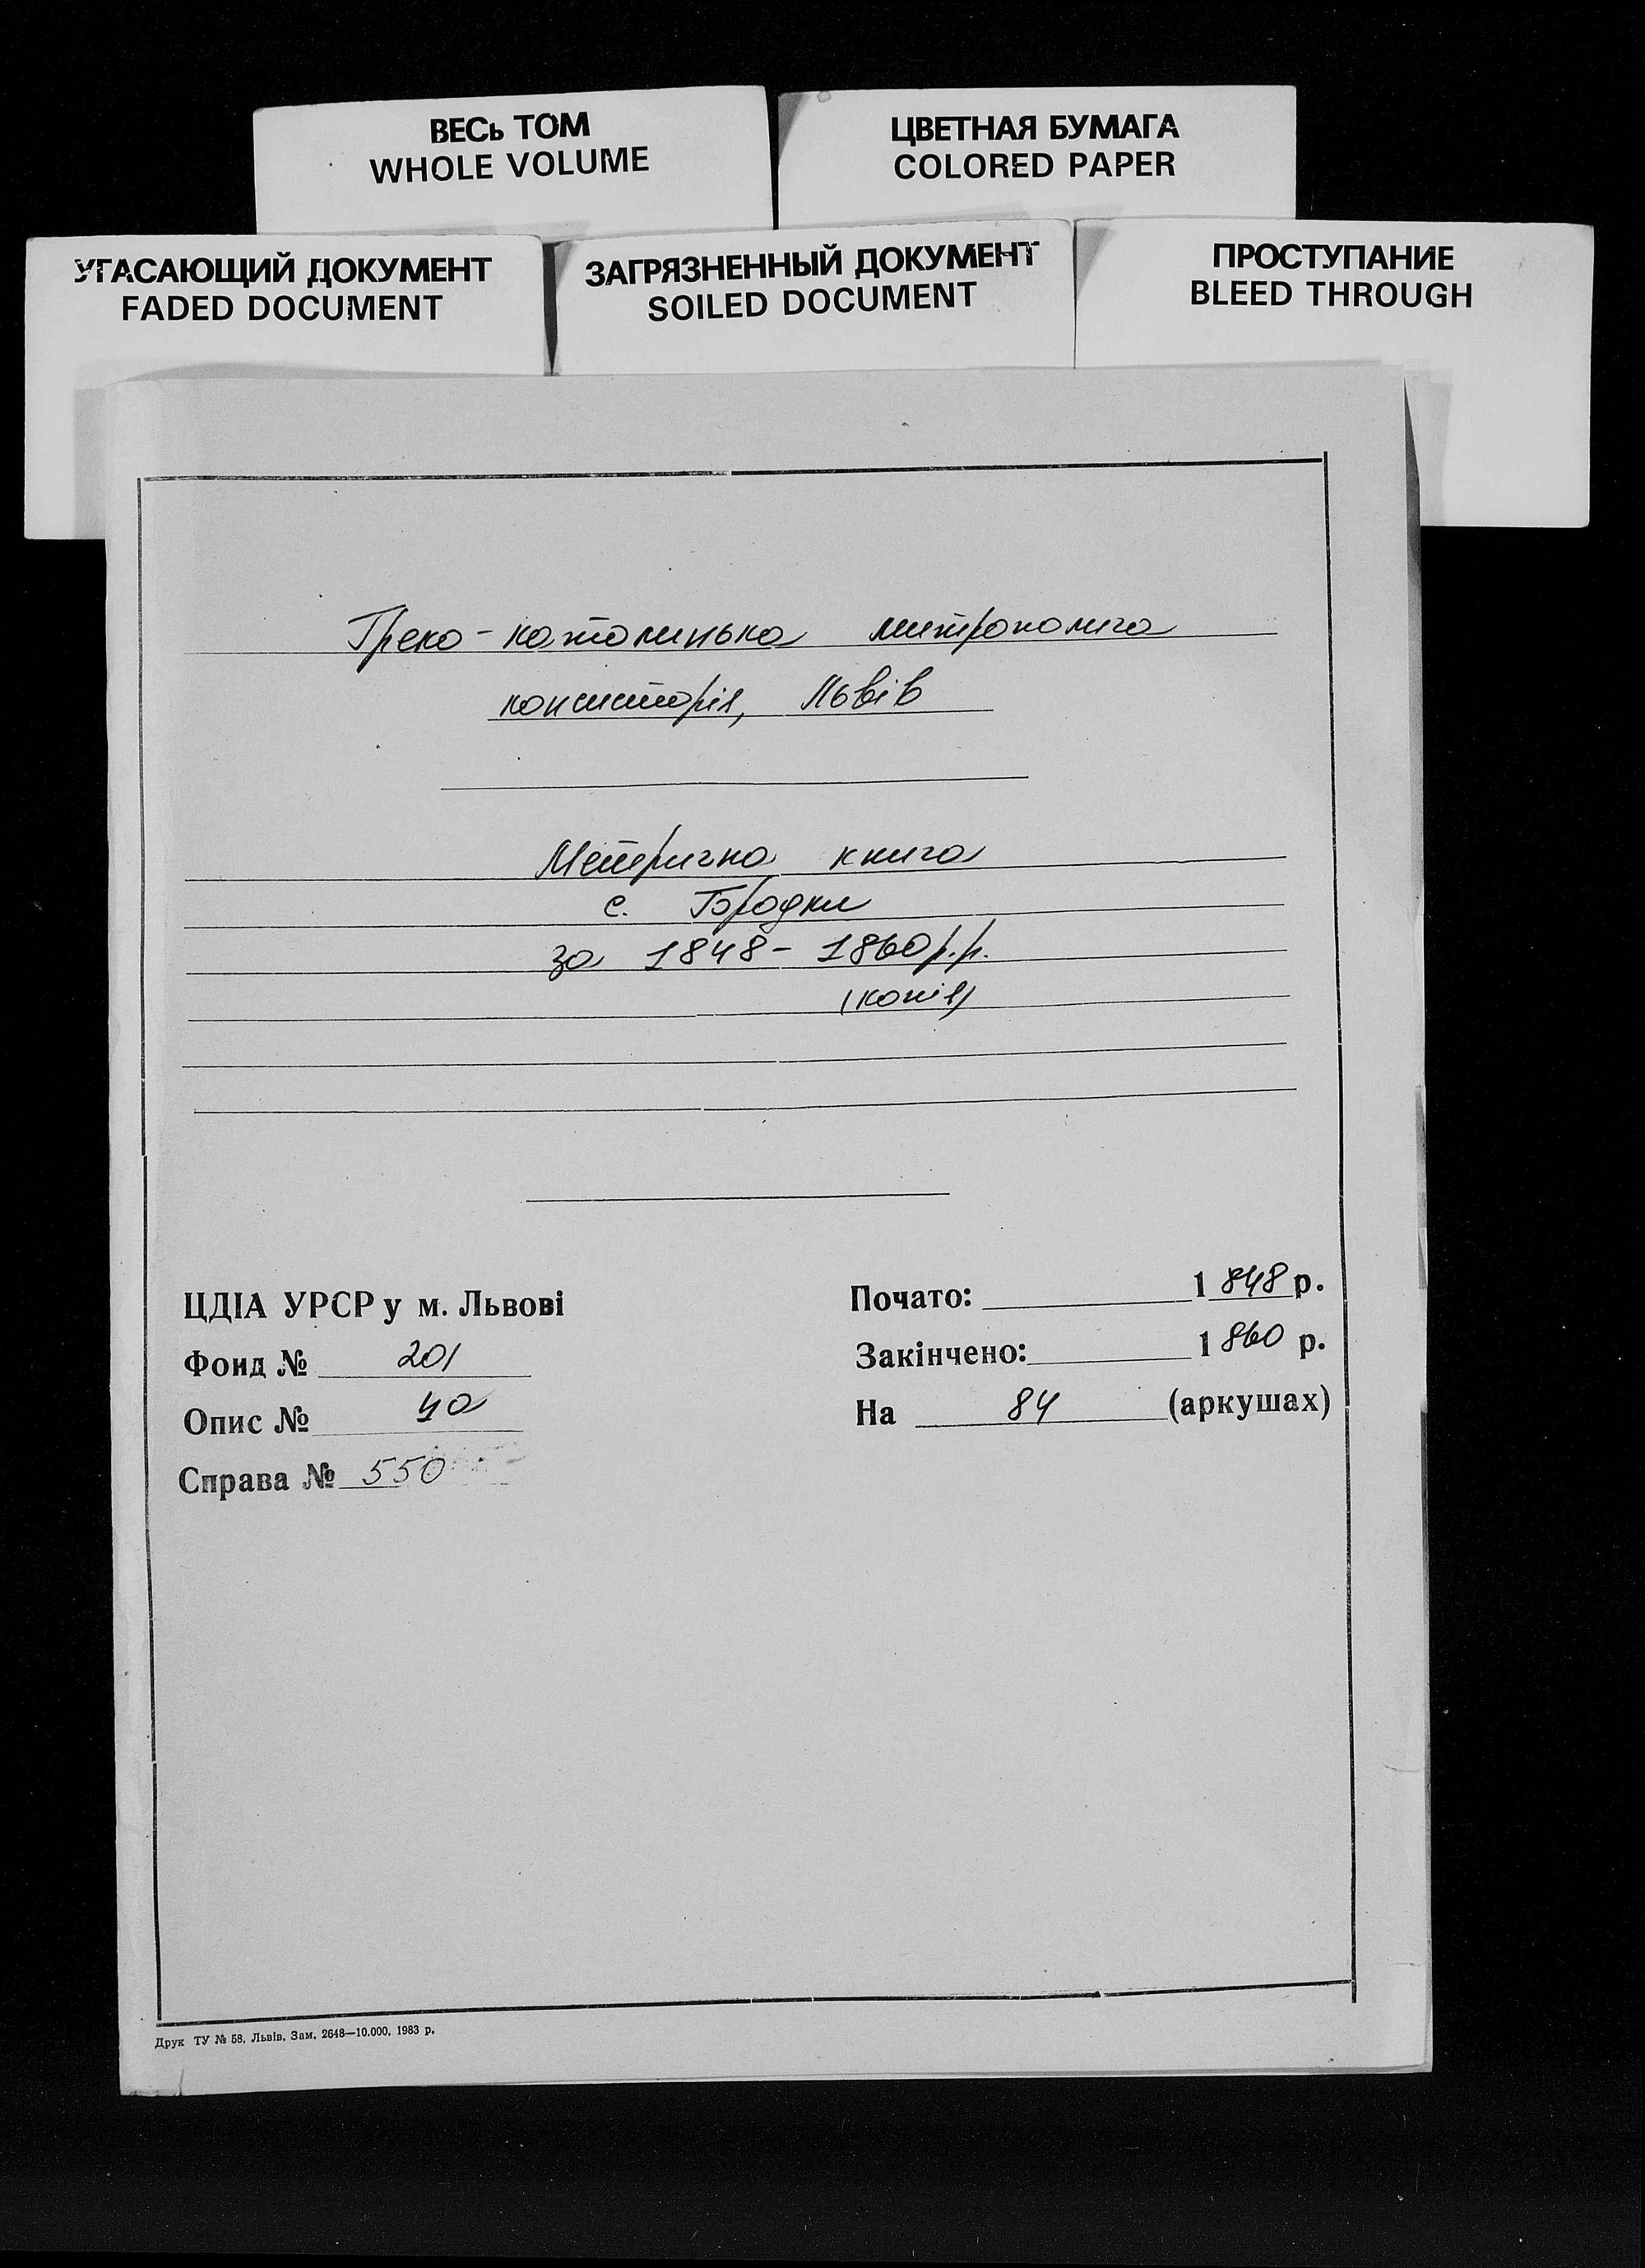 ВЕСЬ ТОМ
WHOLE VOLUME
ЦВЕТНАЯ БУМАГА
COLORED PAPER
УГАСАЮЩИЙ ДОКУМЕНТ
FADED DOCUMENT
ЗАГРЯЗНЕННЫЙ ДОКУМЕНТ
SOILED DOCUMENT
ПРОСТУПАНИЕ
BLEED THROUGH
Греко-католицька митрополича
консисторія, Львів
Метрична книга
с. Бродки
за 1848-1860 р.р.
(копія)
ЦДІА УРСР у м. Львові
Фонд № 201
Опис № 4а
Справа № 550
Почато: 1848 р.
Закінчено: 1860 р.
На 84 (аркушах)
Друк ТУ № 58. Львів. Зам. 2648—10.000. 1983 р.